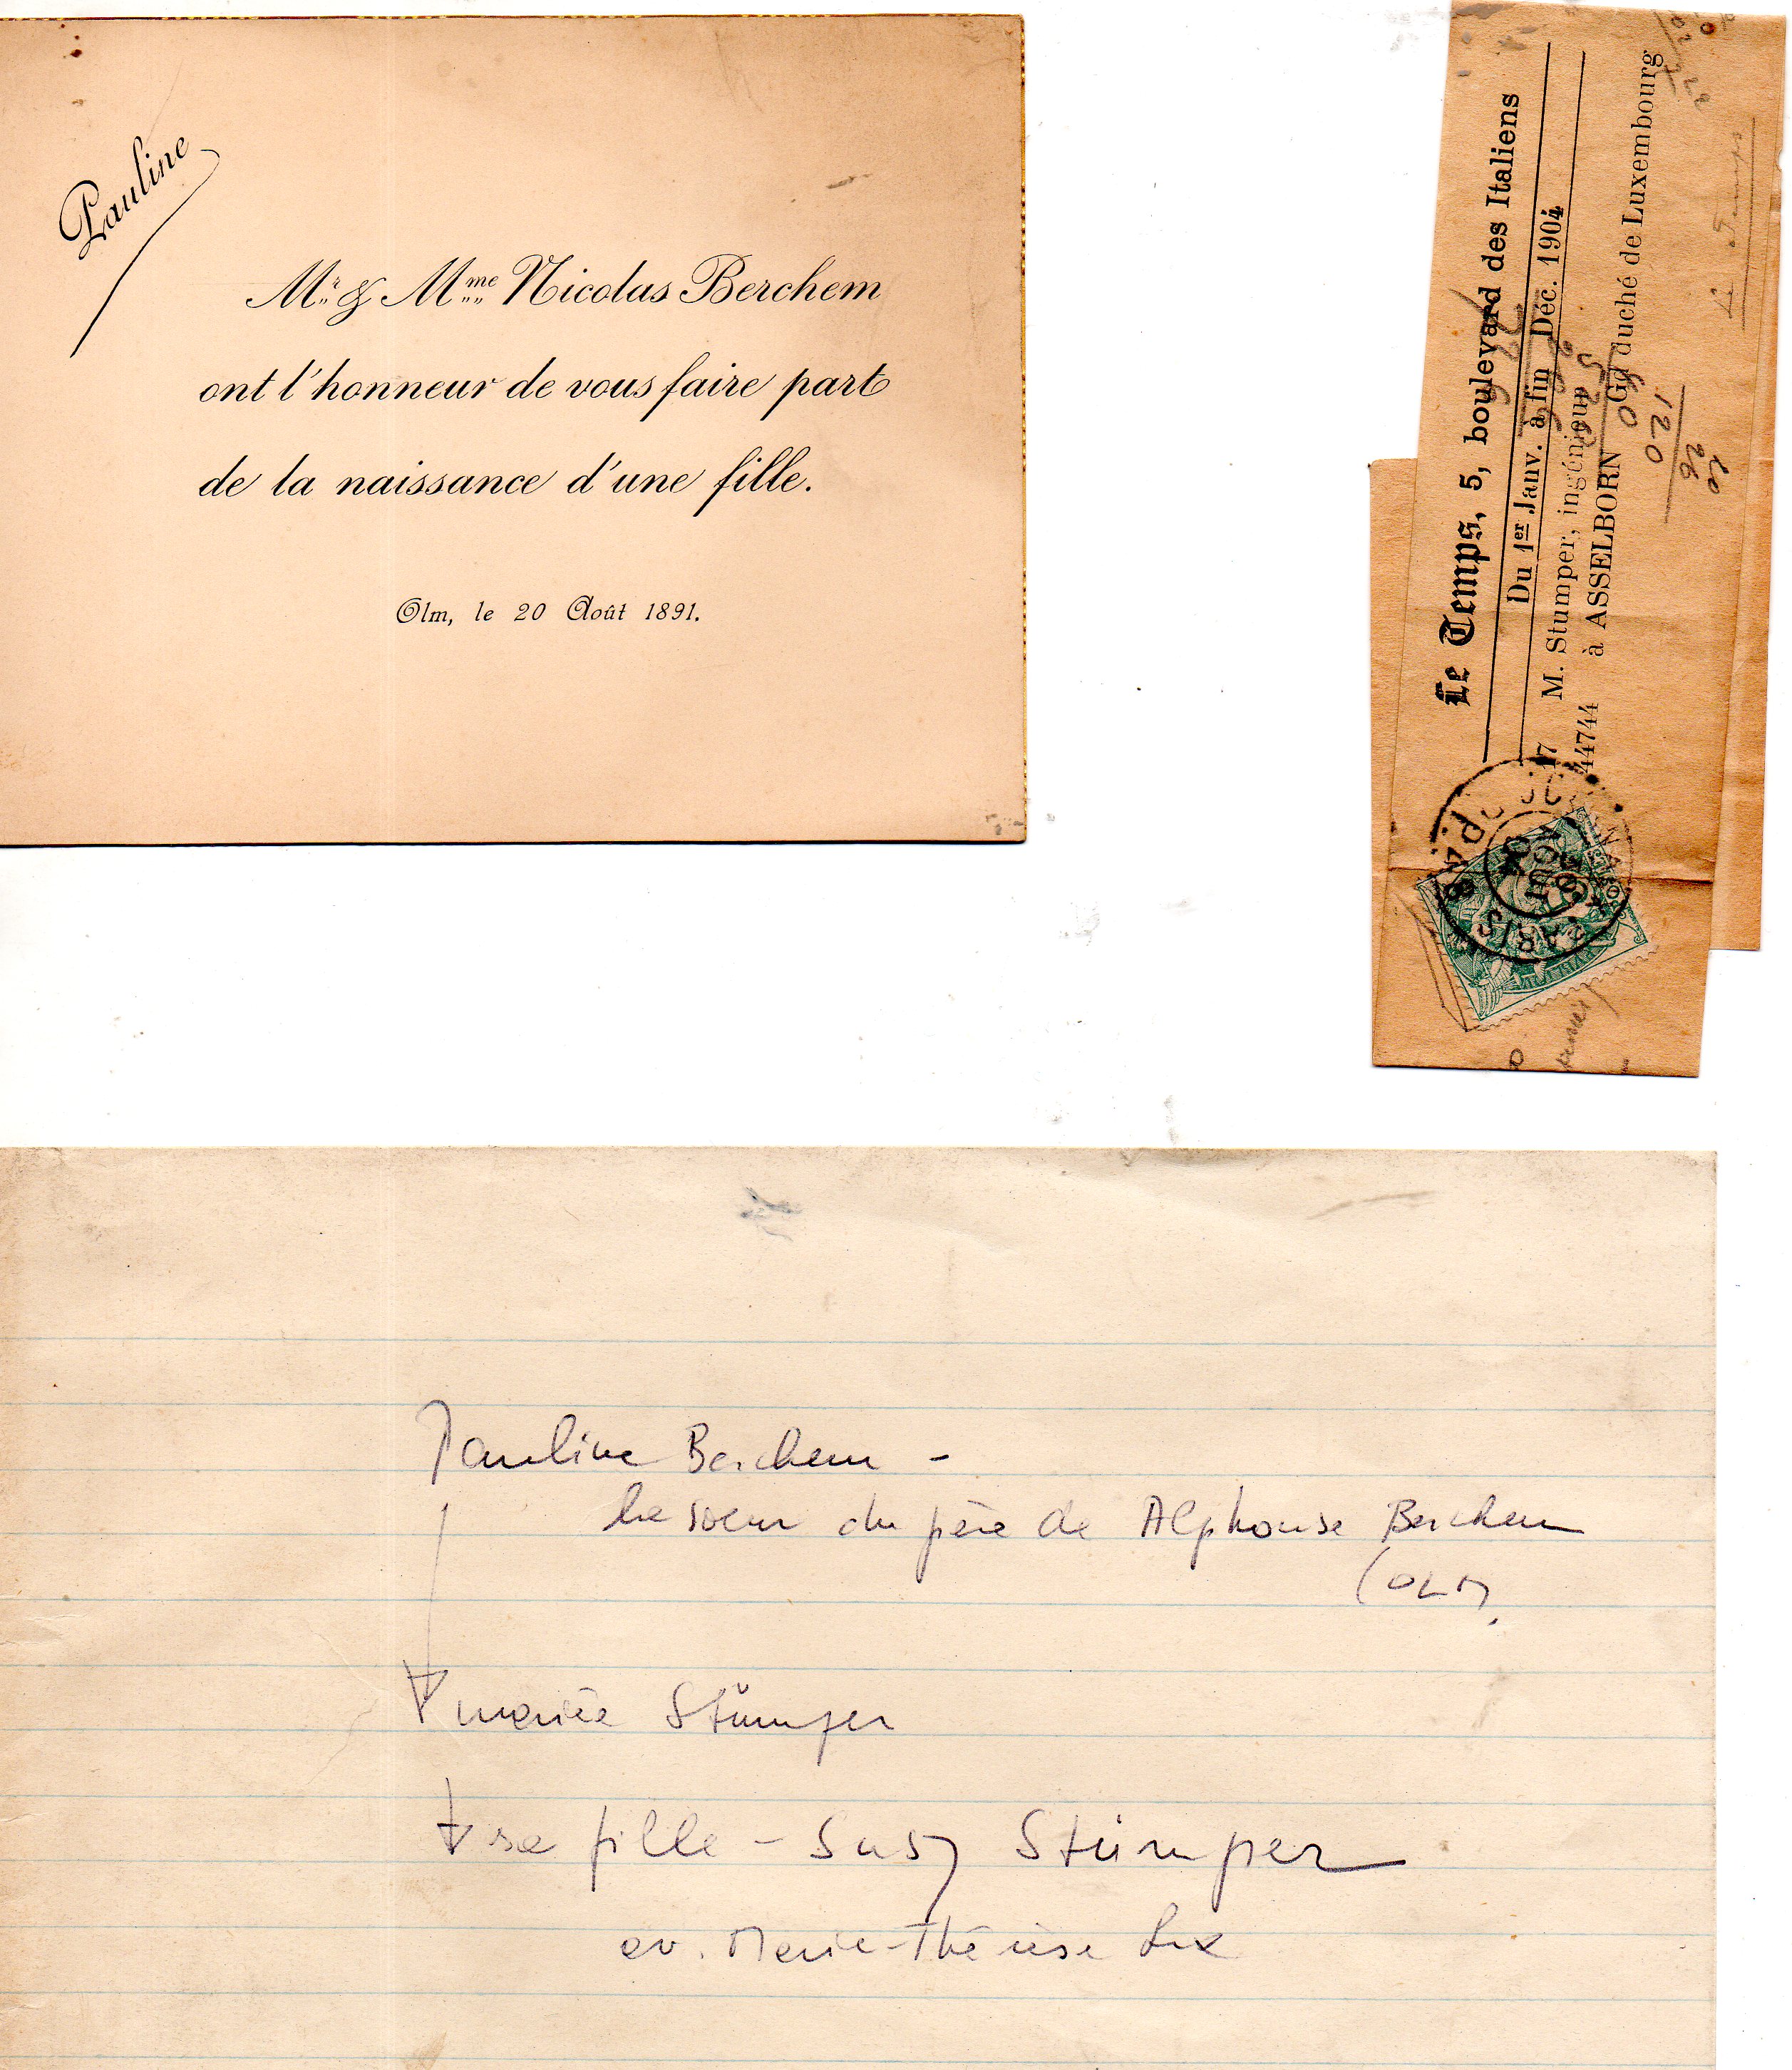 Pauline
Mr. & Mme Nicolas Berchem
ont l'honneur de vous faire part
de la naissance d'une fille.
Olm, le 20 Août 1891.
Le Temps, 5, boulevard des Italiens
Du 1er Janv. à fin Déc. 1904
17 M. Stumper, ingénieur
44744 à ASSELBORN Gd duché de Luxembourg
60
120
26
Le Temps
PARIS
AOUT
Pauline Berchem -
la soeur du père de Alphonse Berchem
(OLM)
mariée Stümper
sa fille - Susy Stümper
av. Marie-Thérèse Lux